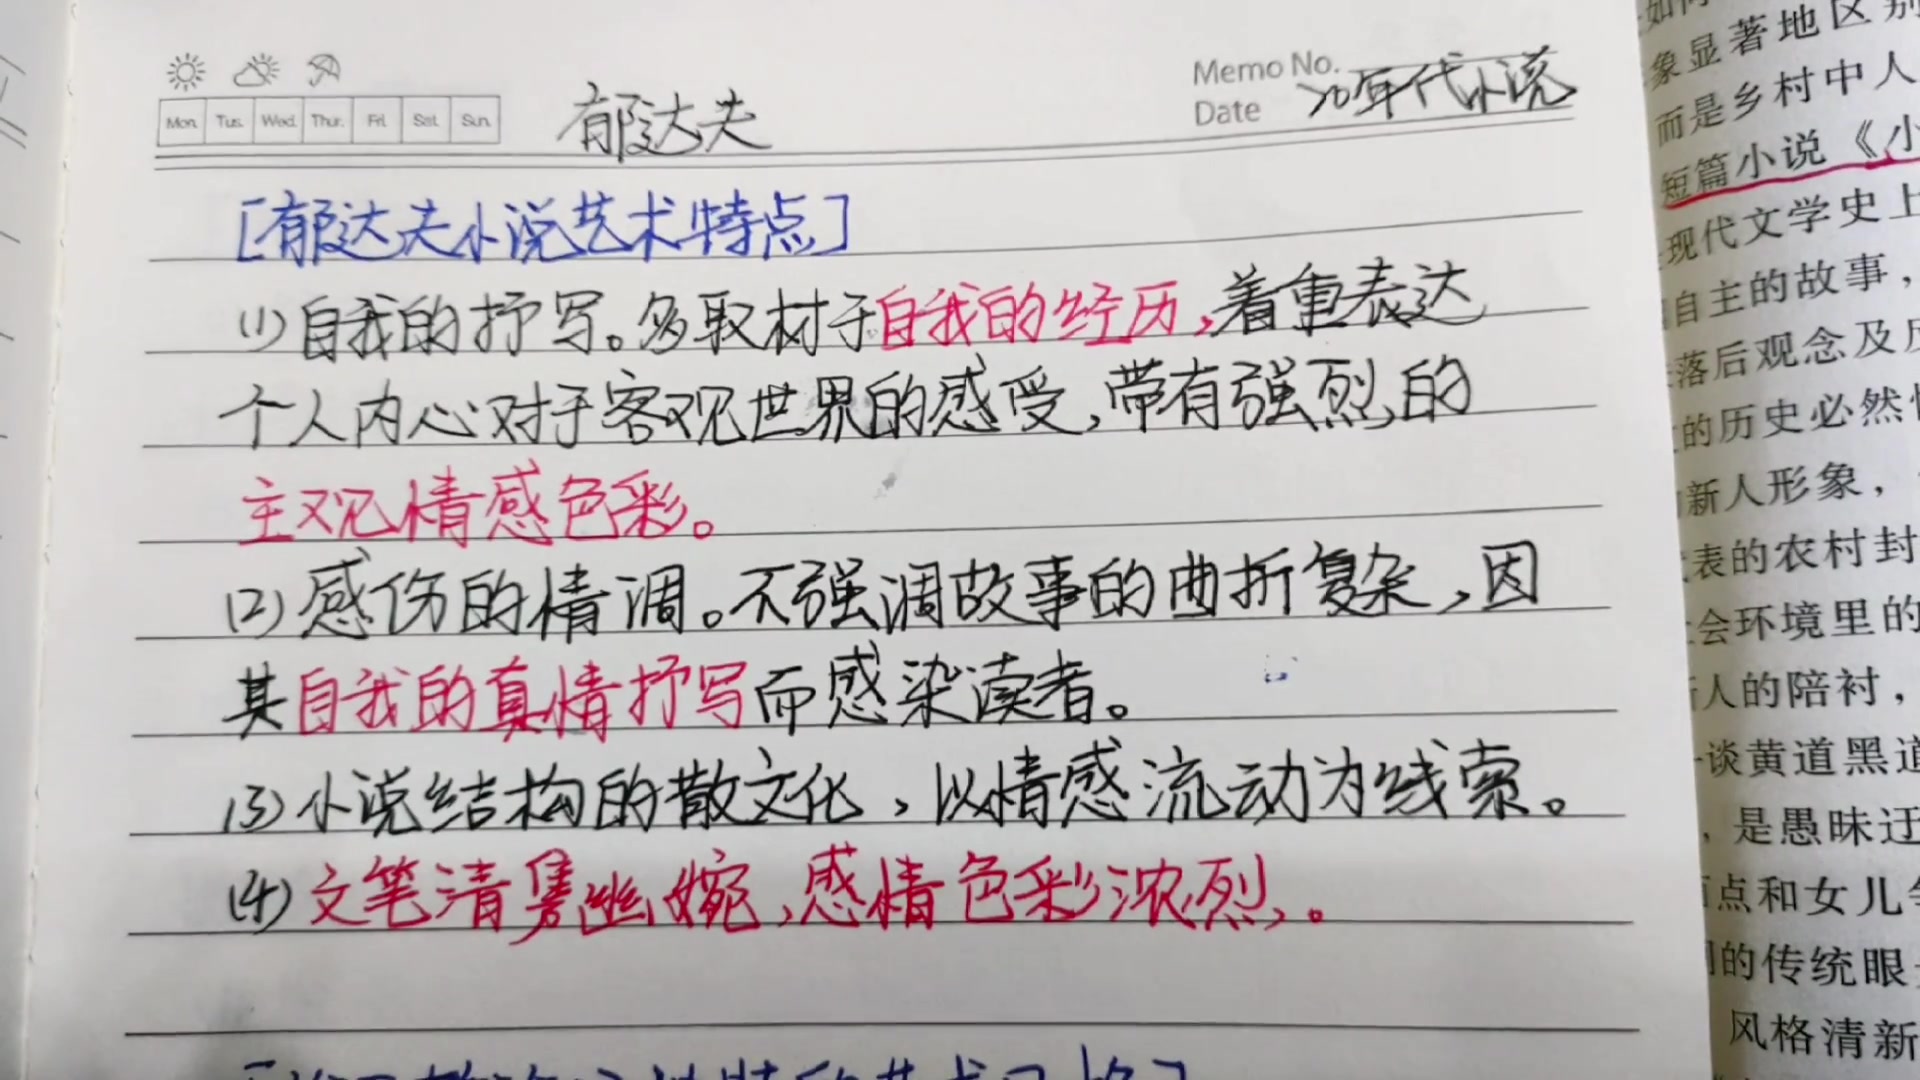 Memo No.
Mon. Tue. Wed. Thur. Fri. Sat. Sun.
郁达夫
Date 20年代小说
[郁达夫小说艺术特点]
(1)自我的抒写。多取材于自我的经历,着重表达
个人内心对于客观世界的感受,带有强烈的
主观情感色彩。
(2)感伤的情调。不强调故事的曲折复杂,因
其自我的真情抒写而感染读者。
(3)小说结构的散文化,以情感流动为线索。
(4)文笔清隽幽婉,感情色彩浓烈。
如何
象显著地区别
而是乡村中人
短篇小说《小
现代文学史上
自主的故事,
落后观念及
的历史必然
新人形象,
表的农村封
会环境里的
人的陪衬,
谈黄道黑道
,是愚昧迂
点和女儿
的传统眼
风格清新